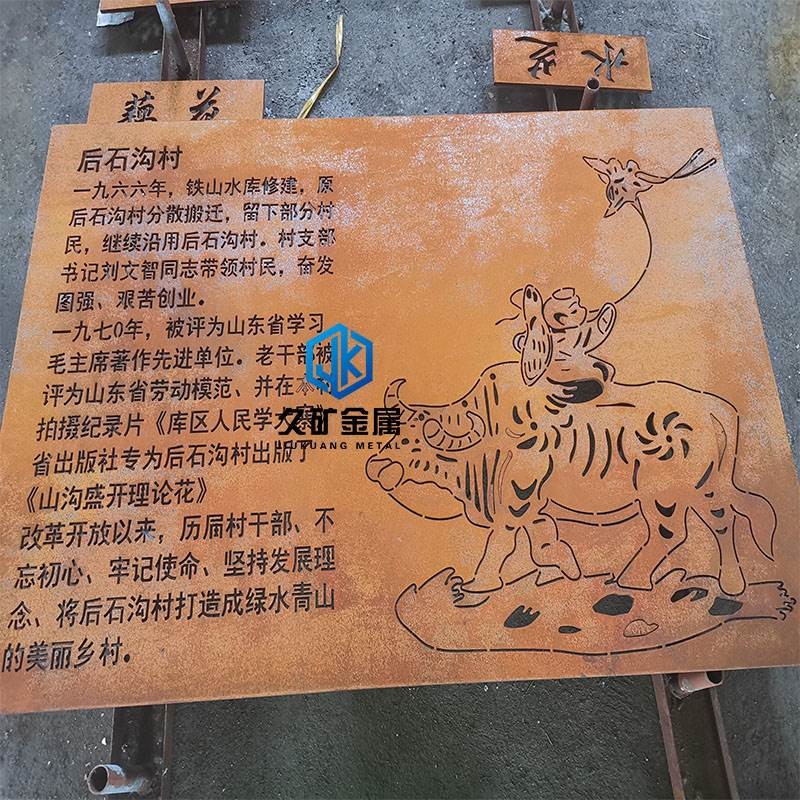 后石沟村
一九六六年，铁山水库修建，原
后石沟村分散搬迁，留下部分村
民，继续沿用后石沟村。村支部
书记刘文智同志带领村民，奋发
图强、艰苦创业。
一九七〇年，被评为山东省学习
毛主席著作先进单位。老干部被
评为山东省劳动模范、并在本村
拍摄纪录片《库区人民学
省出版社专为后石沟村出版了
《山沟盛开理论花》
改革开放以来，历届村干部、不
忘初心、牢记使命、坚持发展理
念、将后石沟村打造成绿水青山
的美丽乡村。
久矿金属
JIUKUANG METAL